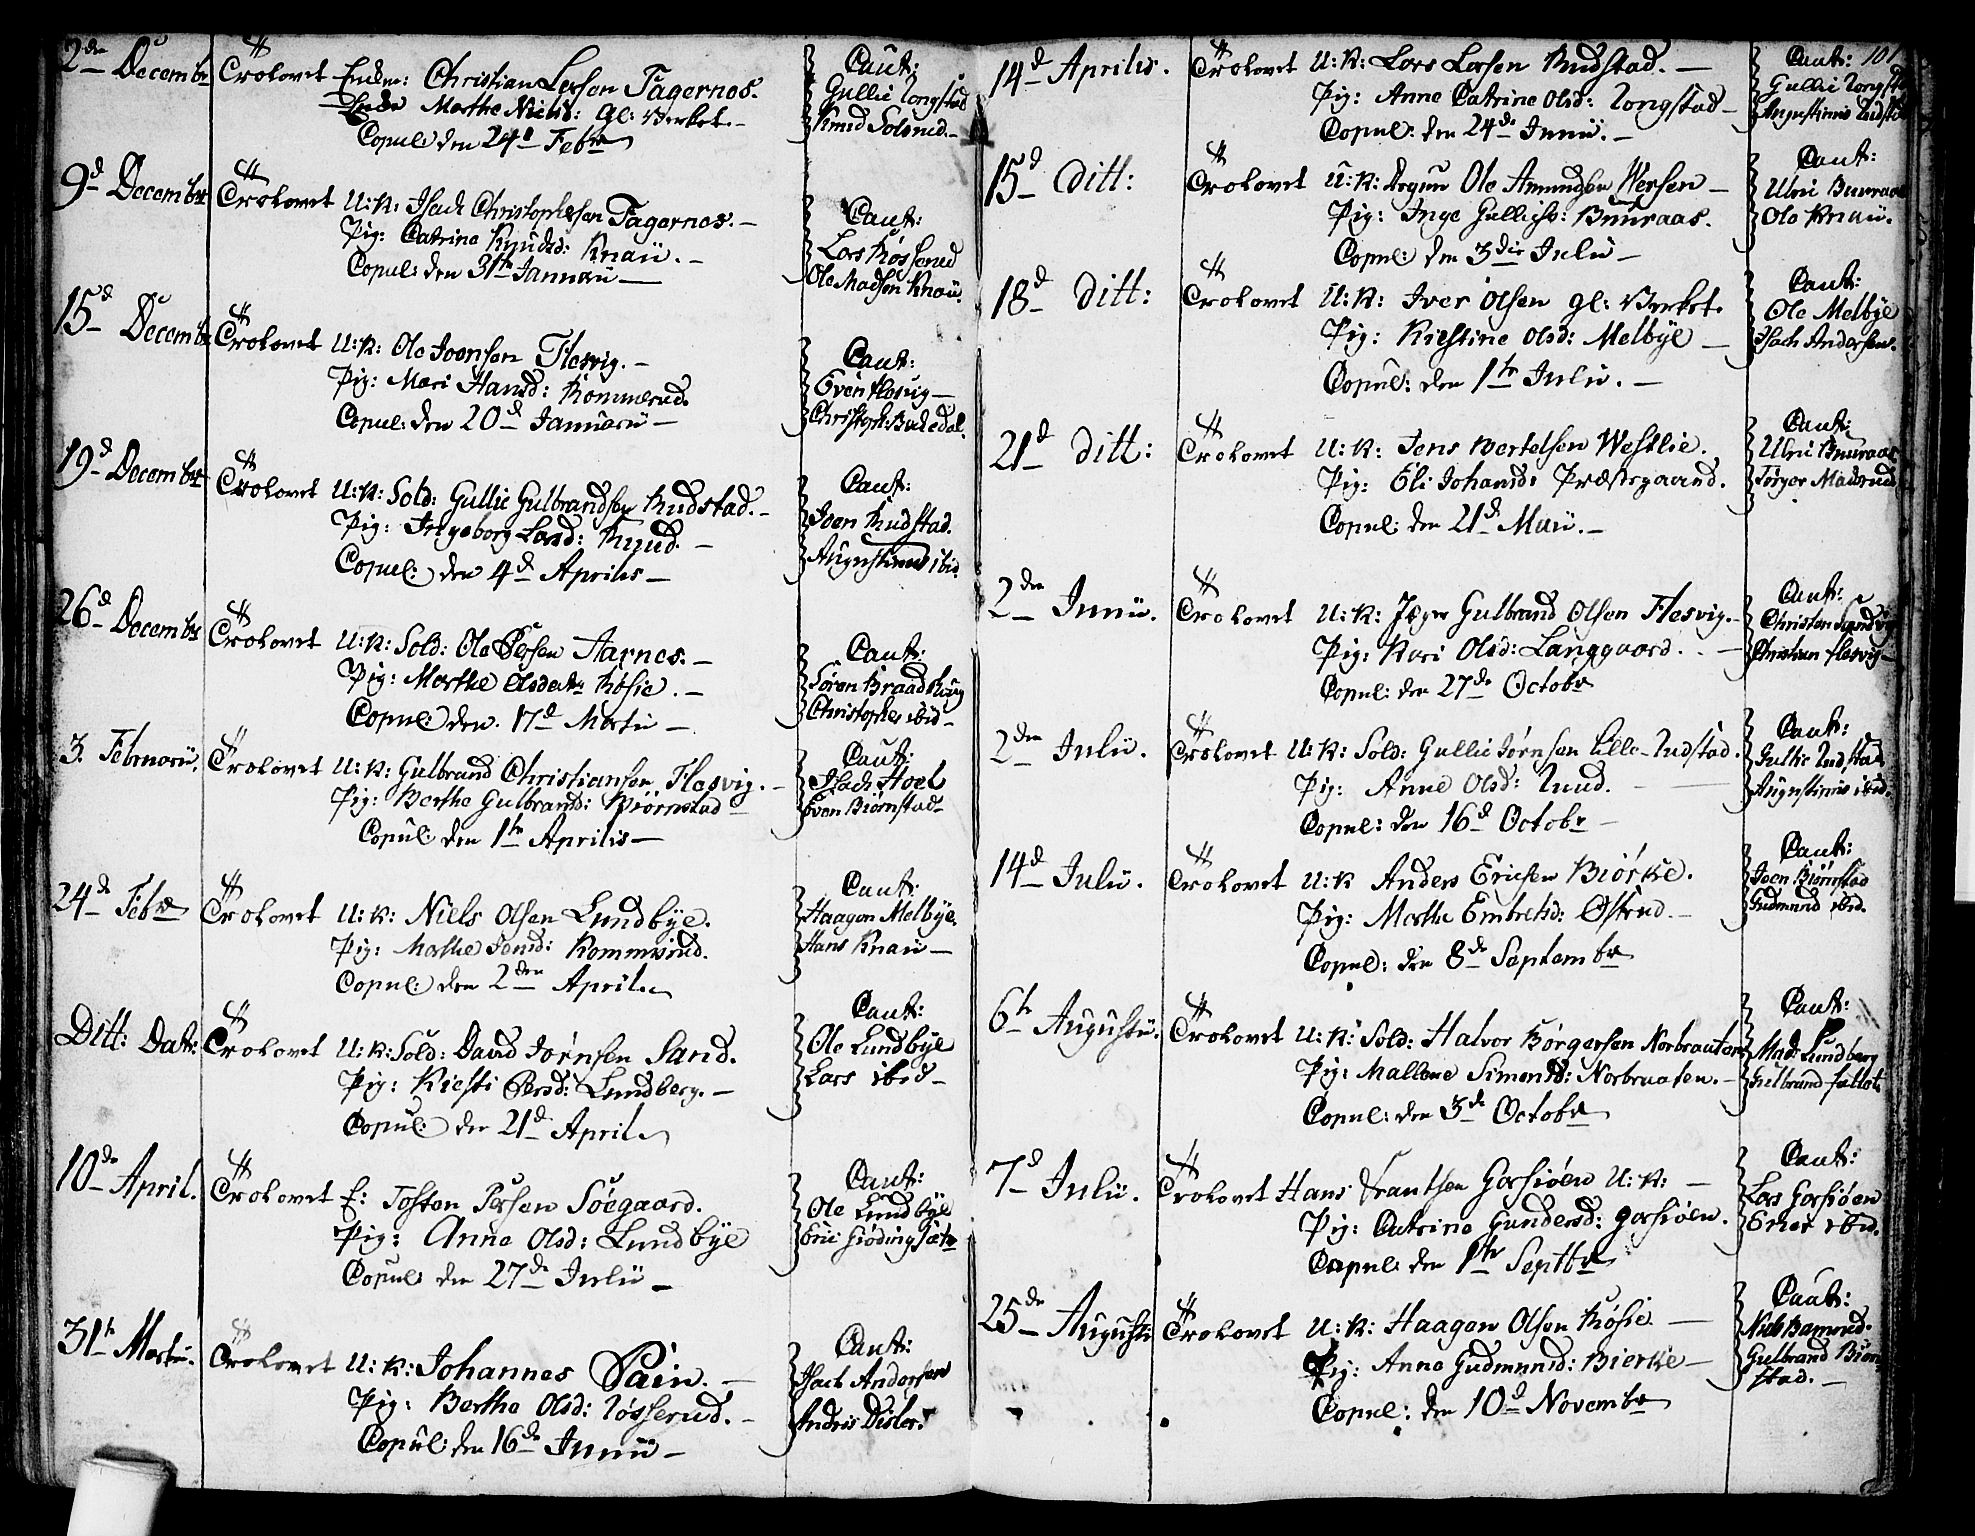 2den Decembr Trolovet Enkm: Christian Larsen Fagernes.
Enke Marthe Nielsd: gl: Verket.
Copul: den 24d Febr
Caut:
Gullic Tongstad
Knud Solerud
9d Decembr Trolovet U:K: Isach Christophersen Fagernes.
Pig: Catrine Knudsd: Knaü.
Copul: den 31te Januarii
Caut:
Lars Røsserud
Ole Madsen Knaü.
15d Decembr Trolovet U:K: Ole Joensen Flesvig.
Pig: Mari Hansd: Kommerud.
Copul: den 20d Januarii
Caut:
Even Flesvig
Christoph: Bakedal.
19d Decembr Trolovet U:K: Sold: Gullic Gulbrandsen Rudstad.
Pig: Ingeborg Larsd: Ruud.
Copul: den 4d Aprilis
Caut:
Joen Rudstad.
Augustinus ibid.
26d Decembr Trolovet U:K: Sold: Ole Persen Aarnes.
Pig: Marthe Olsdatr Røsie.
Copul: den 17d Martii
Caut:
Søren Braadshaug
Christopher ibid
3. Februarii. Trolovet U:K: Gulbrand Christiansen Flesvig.
Pig: Berthe Gulbrands: Biørnstad
Copul: den 1te Aprilis
Caut:
Isach Hoel
Even Biørnstad
24d Febr Trolovet U:K: Niels Olsen Lundbye.
Pig: Marthe Joensd: Kommerud.
Copul: den 2den April.
Caut:
Haagon Melbye.
Hans Knaü
Ditt: Dat: Trolovet U:K: Sold: David Jørnsen Sand.
Pig: Kiersti Persd: Lundberg.
Copul: den 21d April.
Caut:
Ole Lundbye
Lars ibid
10de April. Trolovet E: Tosten Persen Søegaard.
Pig: Anne Olsd: Lundbye
Copul: den 27de Julii
Caut:
Ole Lundbye
Eric Giødingsætr
31te Martii. Trolovet U:K: Johannes Pain.
Pig: Berthe Olsd: Tøsserud.
Copul: den 16de Junii
Caut:
Isach Andersen
Andris Disler
101
14d Aprilis. Trolovet U:K: Lars Larsen Rudstad.
Pig: Anne Catrine Olsd: Tongstad
Copul: den 24de Junii.
Caut:
Gullic Tongstad
Augustinus Rudstad
15d Ditt: Trolovet U:K: Dragun Ole Amundsen Wersen
Pig: Inge Gullics: Buuraas.
Copul: den 3die Julii
Caut:
Ulric Buuraas
Ole Knaü.
18d Ditt: Trolovet U:K: Iver Olsen gl: Verket.
Pig: Kiestine Olsd: Melbye
Copul: den 1te Julii.
Caut:
Ole Melbye
Isach Andersen.
21d Ditt: Trolovet U:K: Jens Bertelsen Westlie.
Pig: Eli Johansd: Præstegaard.
Copul: den 21d Maii.
Caut:
Ulric Buuraas
Tørger Madsrud
2den Junii. Trolovet U:K: Jæger Gulbrand Olsen Flesvig.
Pig: Kari Olsd: Langgaard.
Copul: den 27de Octobr
Caut:
Christen Sandvig
Christian Flesvig
2den Julii. Trolovet U:K: Sold: Gullic Jørnsen Lille-Rudstad.
Pig: Anne Olsd: Ruud.
Copul: den 16d Octobr
Caut:
Gullic Rudstad
Augustinus ibid.
14d Julii. Trolovet U:K Anders Ericsen Biørke.
Pig: Marthe Embretsd: Østrud.
Copul: den 8de Septembr
Caut:
Joen Biørnstad
Gudmund ibid.
6te Augustii. Trolovet U:K: Sold: Halvor Børgersen Norbraaten
Pig: Mallene Simonsd: Norbraaten.
Copul: den 3de Octobr
Caut:
Mad: Lundberg
Gulbrand Fallet
7d Julii. Trolovet Hans Frantsen Garsiøen U:K:
Pig: Catrine Gundersd: Garsiøen.
Copul: den 1te Septbr
Caut:
Lars Garsiøen
Eric ibid.
25de Augusti Trolovet U:K: Haagon Olsen Røsie.
Pig: Anne Gudmunsd: Bierke
Copul: den 10d Novembr
Caut:
Niels Bamerud.
Gulbrand Biørn
stad.